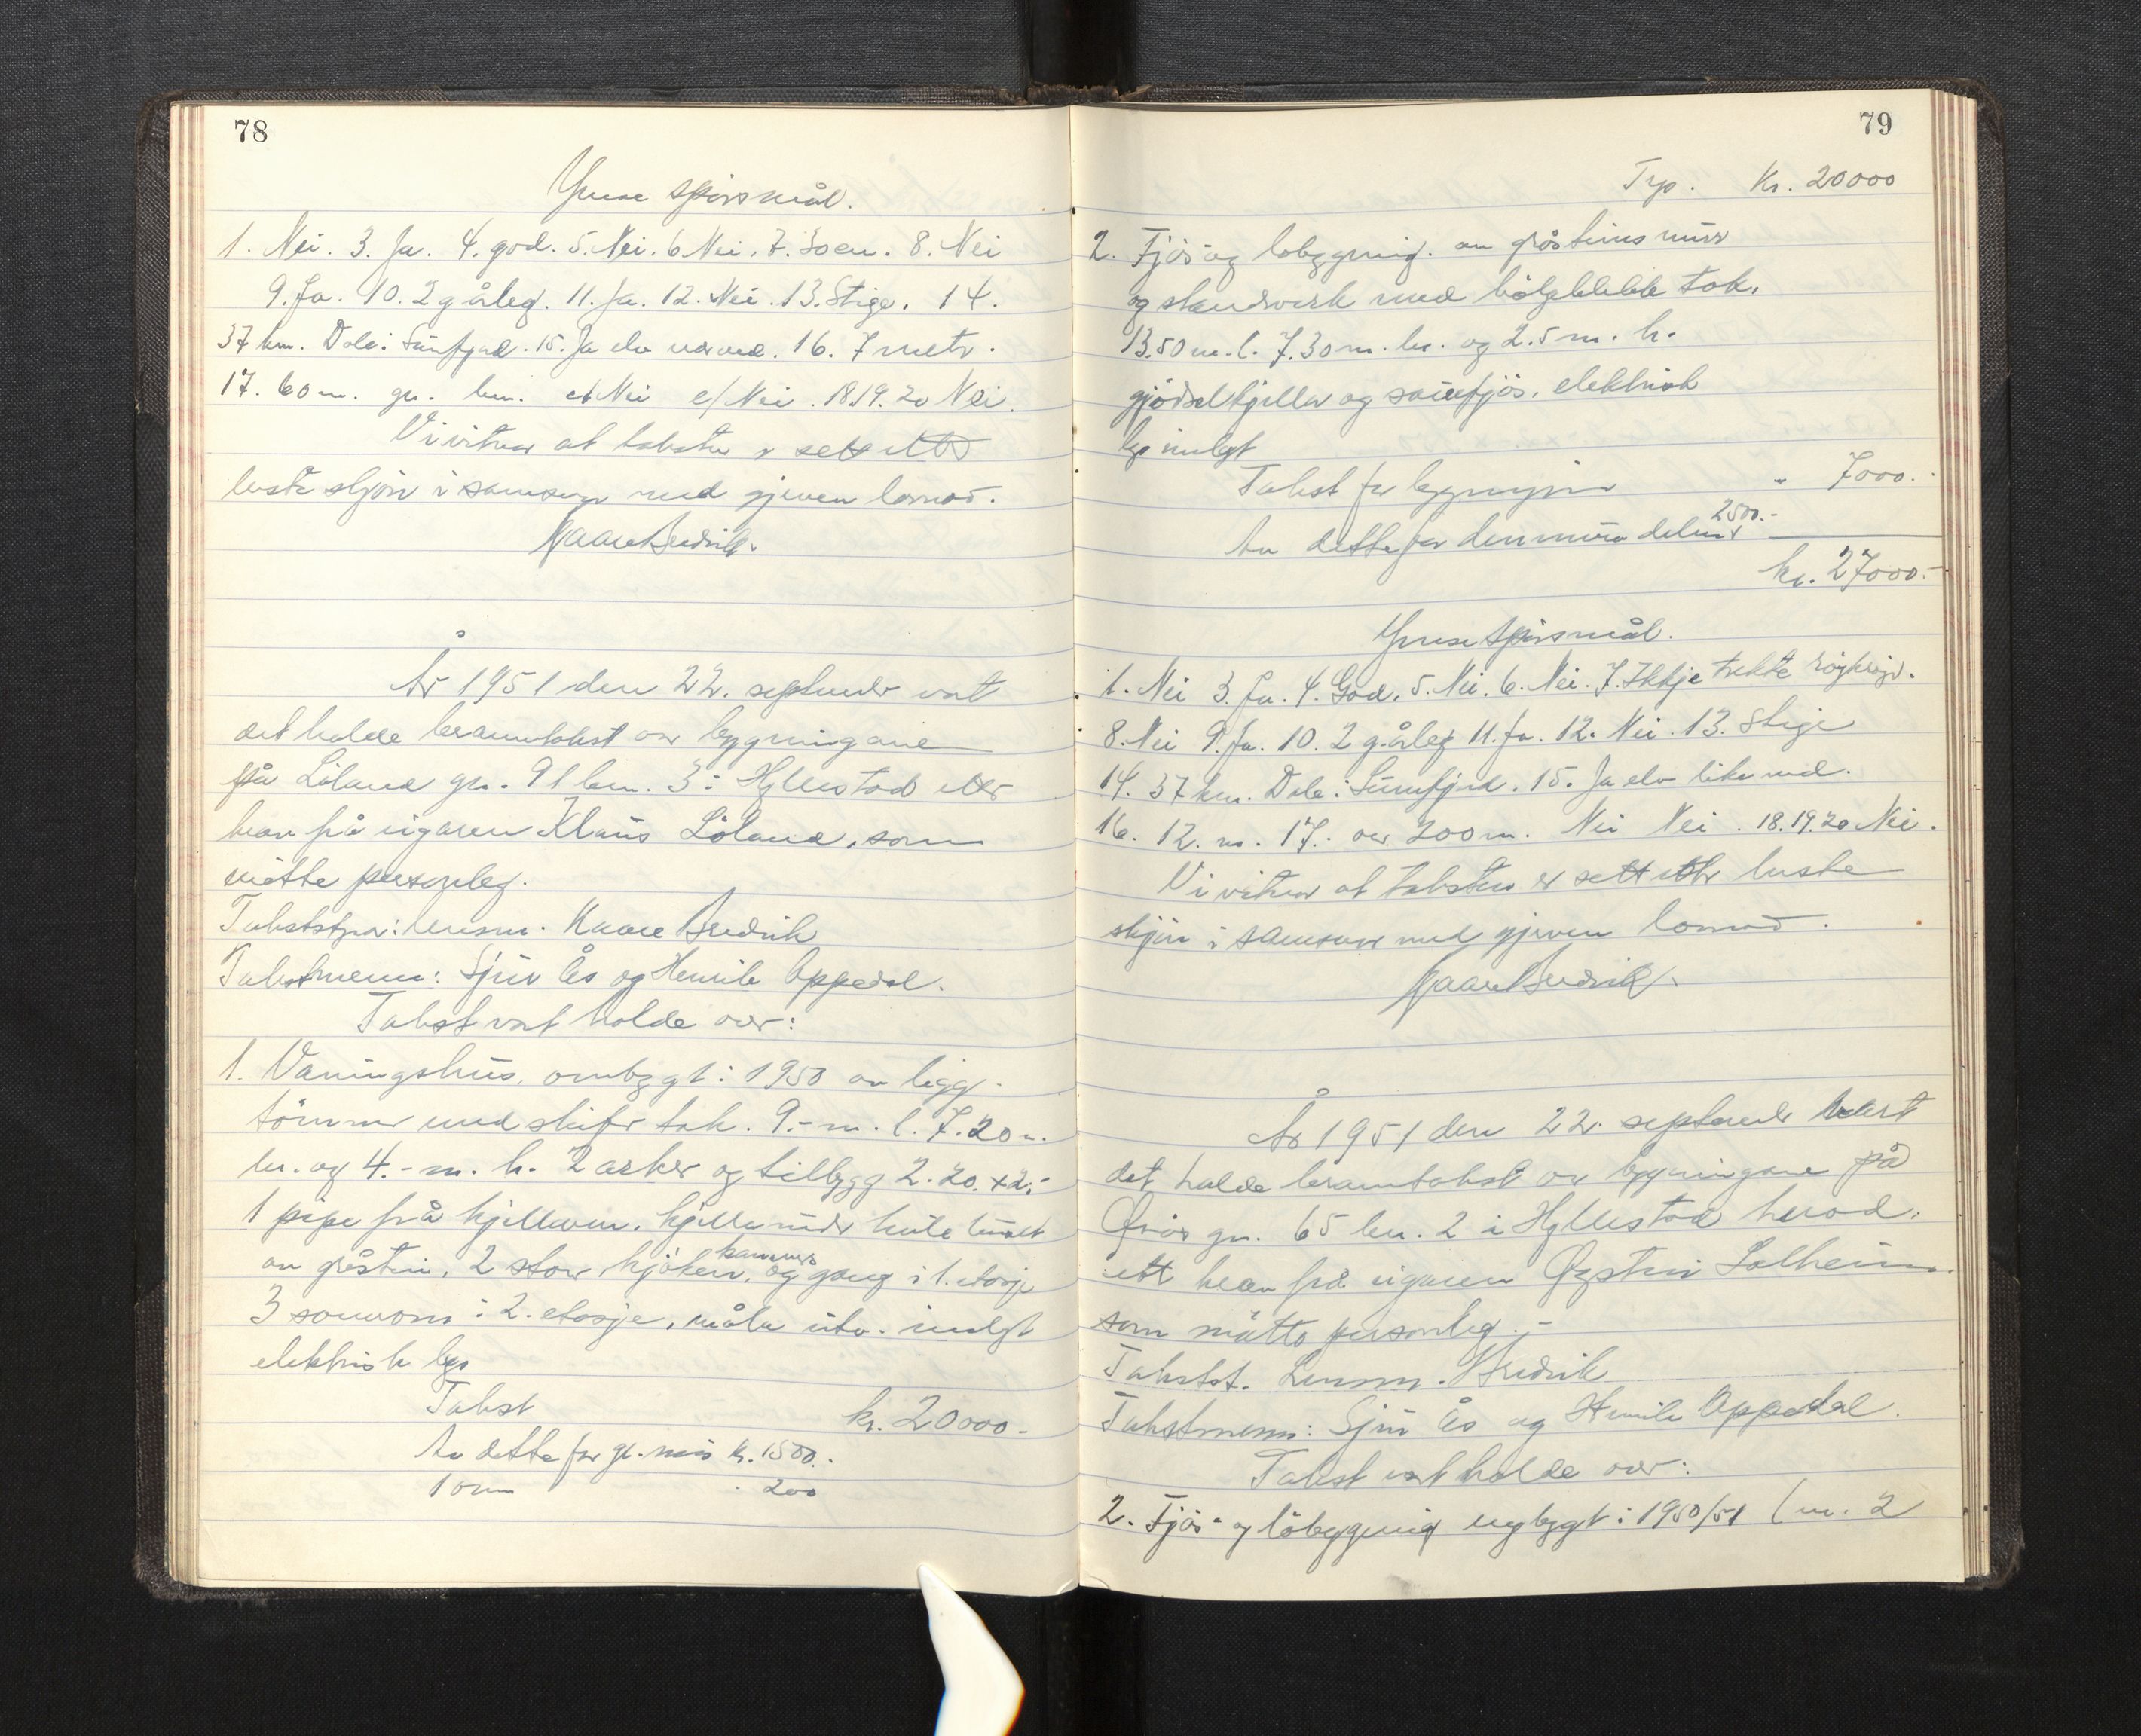 78
Ymse spörsmål.
1. Nei. 3. Ja. 4. god. 5. Nei. 6 Nei. 7. 30 cm. 8. Nei
9. Ja. 10. 2 g årleg. 11. Ja. 12. Nei. 13. Stige. 14.
37 km. Dale i Sunnfjord. 15. Ja elv ved. 16. 7 metr.
17. 60 m. gr. bn. Nei e/ Nei. 18. 19. 20 Nei.
Vi vitnar at taksten er sett etter
beste skjön i samsvar med gjeven lovnad.
Kaare Bredvik.
År 1951 den 22. september vart
det halde branntakst over bygningane
på Löland gr. 91 bn. 3 i Hyllestad etter
krav frå eigaren Klaus Löland, som
mötte personleg.
Takststyrar: lensm. Kaare Bredvik
Takstmenn: Sjur Ås og Henrik Oppedal.
Takst vart halde over:
1. Våningshus, ombygt i 1950 av ligg.
tömmer med skifer tak. 9.- m. l. 7.20 m.
br. og 4.- m. h. 2 arker og tilbygg 2.20 x 2.-
1 pipe frå kjellaren. kjellar under heile huset
av gråstein, 2 stover kjöken, kammers og gang i 1. etasje
3 soverom i 2. etasje, måla utv. innlagt
elektrisk lys
Takst kr. 20000.-
Av dette for gr. mur kr. 1500.-
1 omn " 200
79
Trp. Kr. 20000
2. Fjös og löbygning. av gråsteins mur
og standverk med bölgeblekk tak.
13.50 m. l. 7.30 m. br. og 2.5 m. h.
gjödselkjellar og sauefjös. elektrisk
lys innlagt
Takst for bygningen " 7000.-
Av dette for den mura delen 2500.-
kr. 27000.-
Ymse spörsmål.
1. Nei 3. Ja. 4. God. 5. Nei. 6. Nei. 7. Ikkje trekte röykrøyr.
8. Nei 9. Ja. 10. 2 g. årleg 11. Ja. 12. Nei. 13. Stige
14. 37 km. Dale i Sunnfjord. 15. Ja elv like ved.
16. 12. m. 17. over 200 m. Nei Nei. 18. 19. 20 Nei.
Vi vitnar at taksten er sett etter beste
skjön i samsvar med gjeven lovnad.
Kaare Bredvik
År 1951 den 22. september vart
det halde branntakst over bygningane på
gr. 65 bn. 2 i Hyllestad herad.
ett krav frå eigaren Øystein Solheim.
som mötte personleg.-
Takstst. Lensm. Bredvik
Takstmenn: Sjur Ås og Henrik Oppedal.
Takst vart halde over:
2. Fjös- og löbygning nybygt i 1950/51 (nr. 2